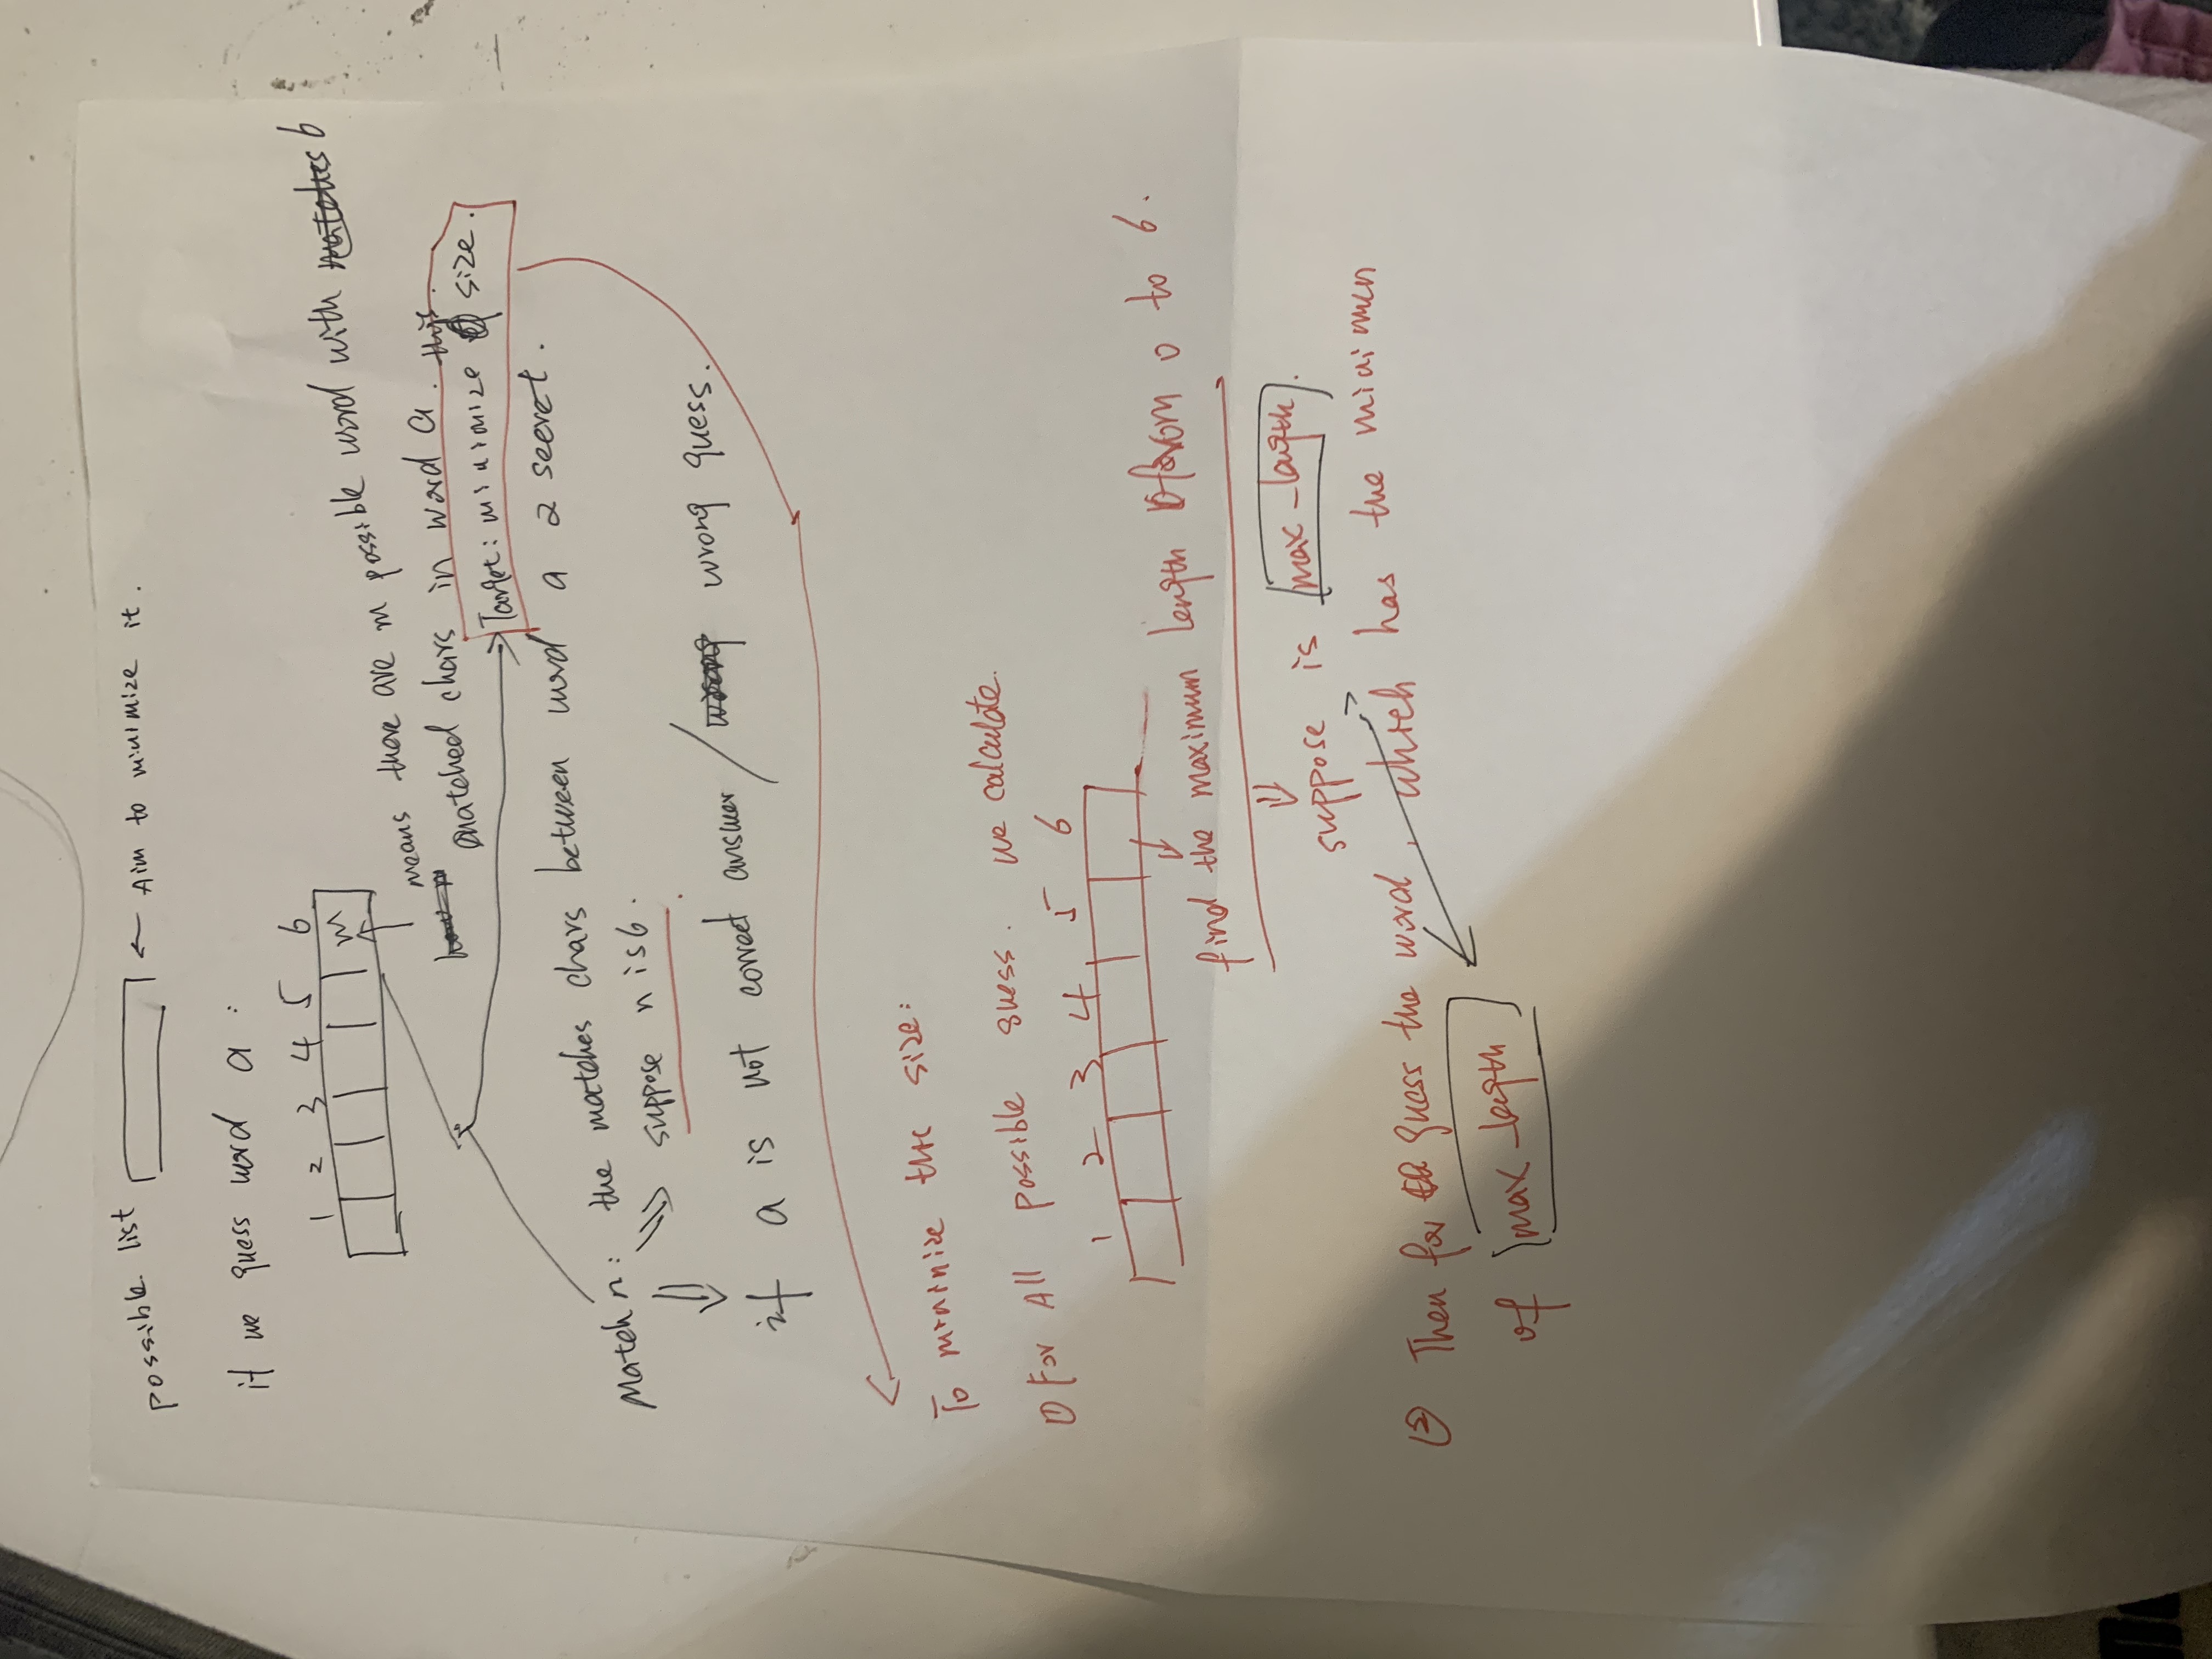 possible list ← Aim to minimize it.
if we guess word a :
1 2 3 4 5 6
m
means there are m possible word with matches 6
matched chars in word a. this
Target: minimize size.
Match n: the matches chars between word a 2 secret.
suppose n is 6.
if a is not correct answer / wrong wrong guess.
To mininize the size:
① For All possible guess. we calculate.
1 2 3 4 5 6
find the maximum length from 0 to 6.
suppose is max_length.
② Then for guess the word, which has the minimun
of max_length